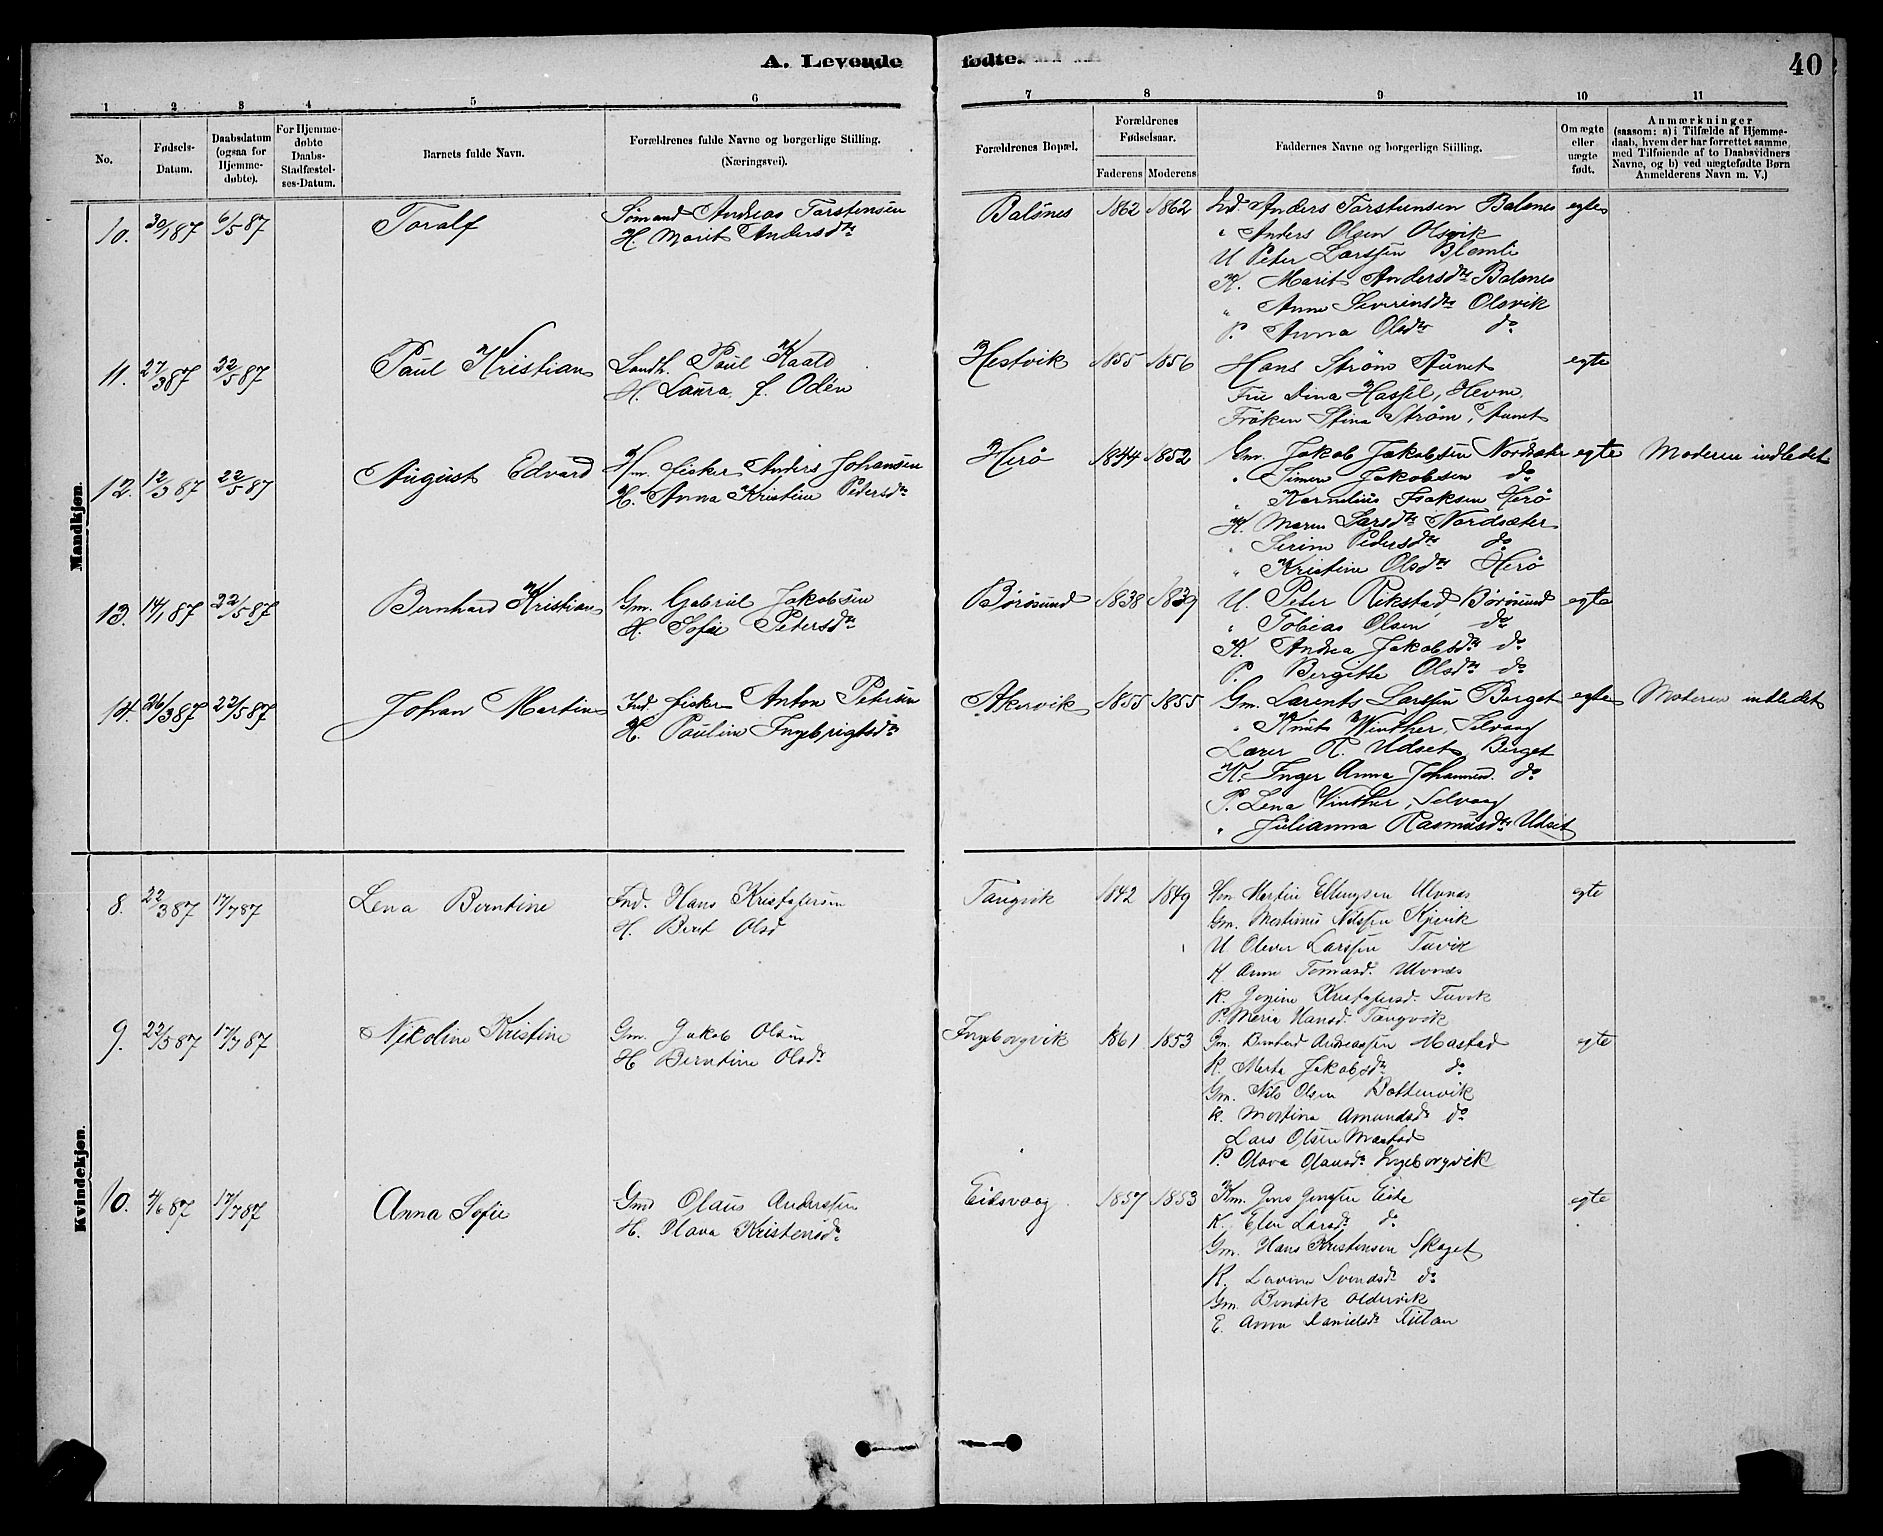 A. Levende fødte. 40
1 2 3 4 5 6 7 8 9 10 11
No.
Fødsels-
Datum.
Daabsdatum
(ogsaa for
Hjemme-
døbte).
For Hjemme-
døbte
Daabs-
Stadfæstel-
ses-Datum.
Barnets fulde Navn.
Forældrenes fulde Navne og borgerlige Stilling.
(Næringsvei).
Forældrenes Bopæl.
Forældrenes
Fødselsaar.
Faderens Moderens
Faddernes Navne og borgerlige Stilling.
Om ægte
eller
uægte
født.
Anmærkninger
(saasom: a) i Tilfælde af Hjemme-
daab, hvem der har forrettet samme,
med Tilføiende af to Daabsvidners
Navne, og b) ved uægtefødte Børn
Anmelderens Navn m. V.)
Mandkjøn.
10. 30/1 87 6/5 87 Toralf Sømand Andreas Tarstensen Balsnes 1862 1862 Ind. Anders Tarstensen Balsnes egte
H. Marit Andersdtr
" Anders Olsen Olsvik
U Peter Larssen Blomli
K. Marit Andersdtr Balsnes
" Anne Severinsdtr Olsvik
P. Anna Olsdtr do
11. 27/3 87 22/5 87 Paul Kristian Landh. Paul Kaald Hestvik 1855 1856 Hans Strøm Aunet egte
H. Laura f. Odén
Frue Dina Hassel, Hevne
Frøken Stina Strøm, Aunet
12. 12/3 87 22/5 87 August Edvard Hm. fisker Anders Johansen Herø 1844 1852 Gm. Jakob Jakobsen Nordsæter egte Moderen indledet
H. Anna Kristine Pedersdtr
" Simen Jakobsen do
" Kornelius Isaksen Herø
K. Maren Larsdtr Nordsæter
" Serine Pedersdtr do
" Kristine Olsdtr Herø
13. 14/1 87 22/5 87 Bernhard Kristian Gm. Gabriel Jakobsen Børøsund 1838 1839 U. Peter Rikstad, Børøsund egte
H. Sofie Petersdtr
" Tobias Olsen do
K. Andrea Jakobsdtr do
P. Bergitte Olsdtr do
14. 26/3 87 22/5 87 Johan Martin Ind. fisker Anton Petersen Akervik 1855 1855 Gm. Larents Larssen Berget egte Moderen indledet
H. Pauline Ingebrigtsdtr
" Knut Winther, Selvaag
Lærer R. Udset, Berget
K. Inger Anna Johannesd. do
P. Lena Winther, Selvaag
" Julianna Rasmusdtr Udset
Kvindekjøn.
8. 22/3 87 17/7 87 Lena Berntine Ind. Hans Kristofersen Tangvik 1842 1849 Hm Martin Ellingsen Ulvnes egte
H. Berit Olsd
Gm. Martinus Nilssen Kjervik
U Oliver Larssen Tuvik
H Anne Tomasd. Ulvnes
K. Gurine Kristofersd. Tuvik
P. Maria Hansd. Tangvik
9. 22/5 87 17/7 87 Nikoline Kristine Gm. Jakob Olsen Ingeborgvik 1861 1853 Gm. Bernhard Andreassen Mastad egte
H Berntine Olsdr
K. Marta Jakobsdr do
Gm. Nils Olsen Bottenvik
K. Martina Amundsdr do
Lars Olsen Mastad
P. Olava Olausdr Ingeborgvik
10. 4/6 87 17/7 87 Anna Sofie Gmd Olaus Anderssen Eidsvaag 1857 1853 Km. Jens Jenssen Eide egte
H. Olava Kristensdr
K. Elen Larsdr do
Gm. Hans Kristensen Skaget
K. Lavina Svendsdr do
Gm. Bendik Oldervik
E. Anna Danielsdr Titlan